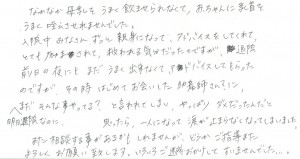 なかなか母乳を うまく飲ませられなくて、赤ちゃんに乳首を
うまく吸わせれませんでした。
入院中 みなさん ずっと 親身になって、アドバイスをしてくれて、
とても されて、救われる気分だったのですが、退院
前日の夜にも まだ うまく出来なくて、アドバイスしてもらった
のですが、その時 はじめてお会いした 助産師さん?に、
まだ そんな事やってる? と言われてしまい、やっぱり ダメだったんだと
明日退院なのに、 思ったら、一人になって 涙が止まらなくなってしまいました。
また 相談する事があるかもしれませんが、どうか ご指導
よろしく お願い致します。いろいろご迷惑おかけして すいませんでした…。